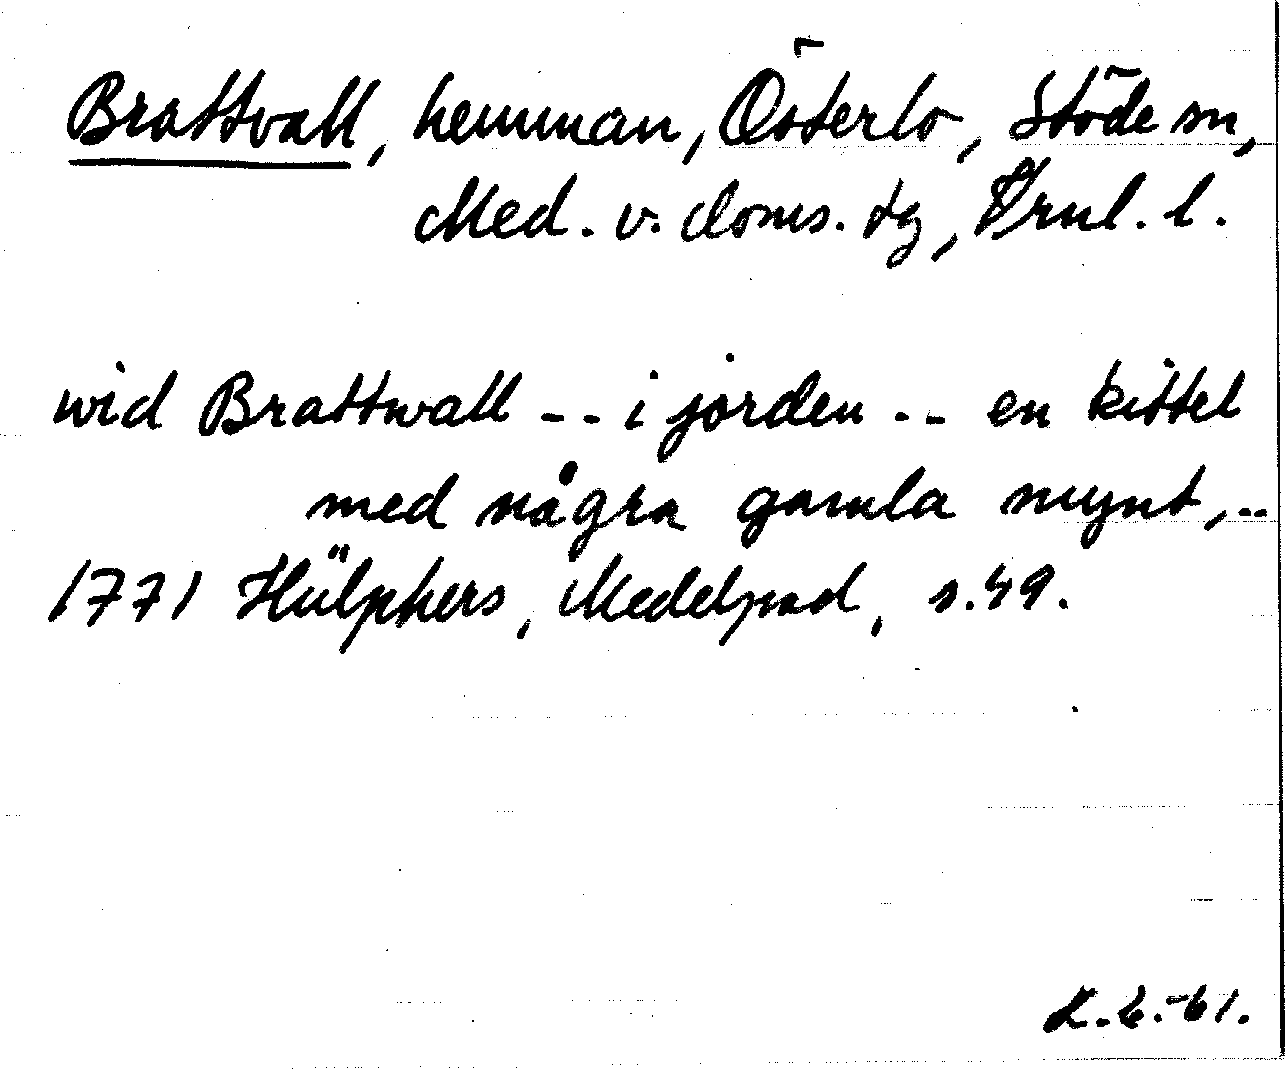 Brattvall, hemman, Österlo, Stöde sn,
Med. v. doms. tg, Vrnl. l.
wid Brattwall -- i jorden -- en kittel
med några gamla mynt, --
1771 Hülphers, Medelpad, s. 49.
L. E. -61.